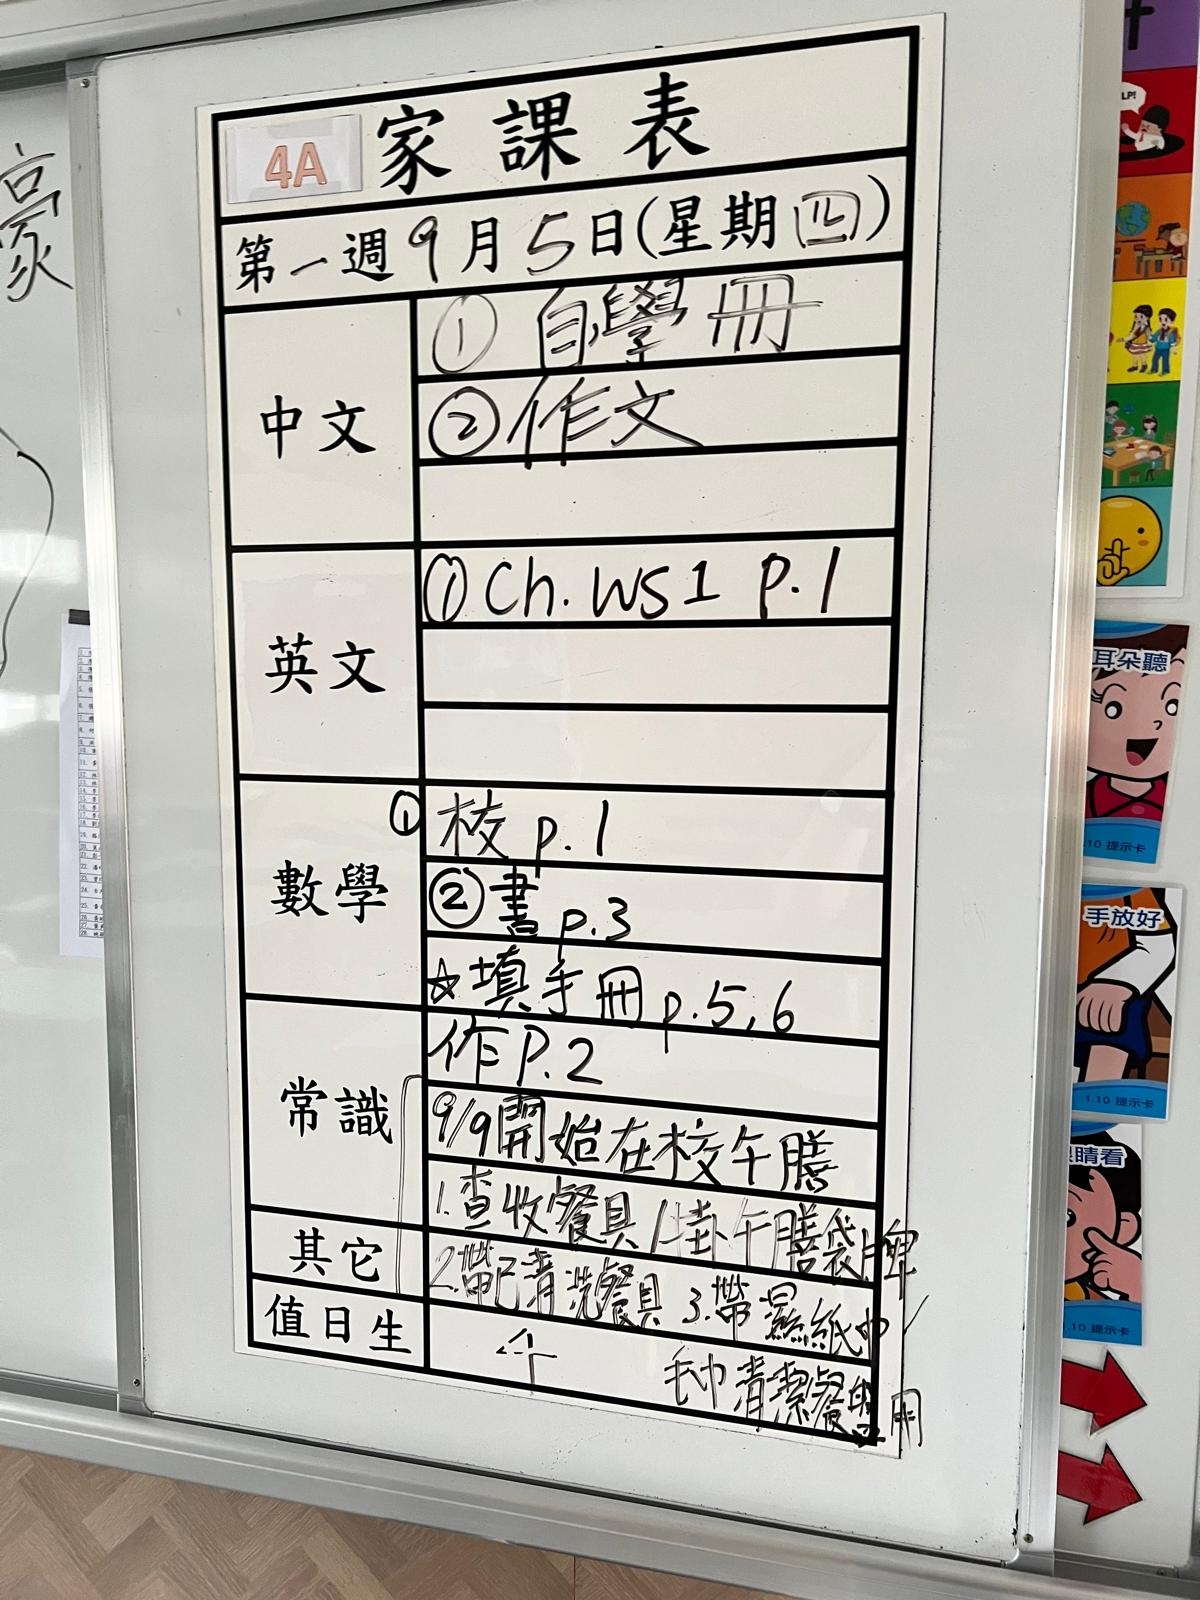 4A 家課表
第一週9月5日(星期四)
中文
① 自學冊
② 作文
英文
① Ch. WS1 p.1
數學
① 校 p.1
② 書 p.3
☆填手冊 p.5,6
常識
作 P.2
9/9開始在校午膳
1.查收餐具/掛午膳袋牌
其它
2.帶已清洗餐具 3.帶濕紙巾/
毛巾清潔餐與用
值日生
耳朵聽
.10 提示卡
手放好
1.10 提示卡
睛看
.10 提示卡
LP!
豪